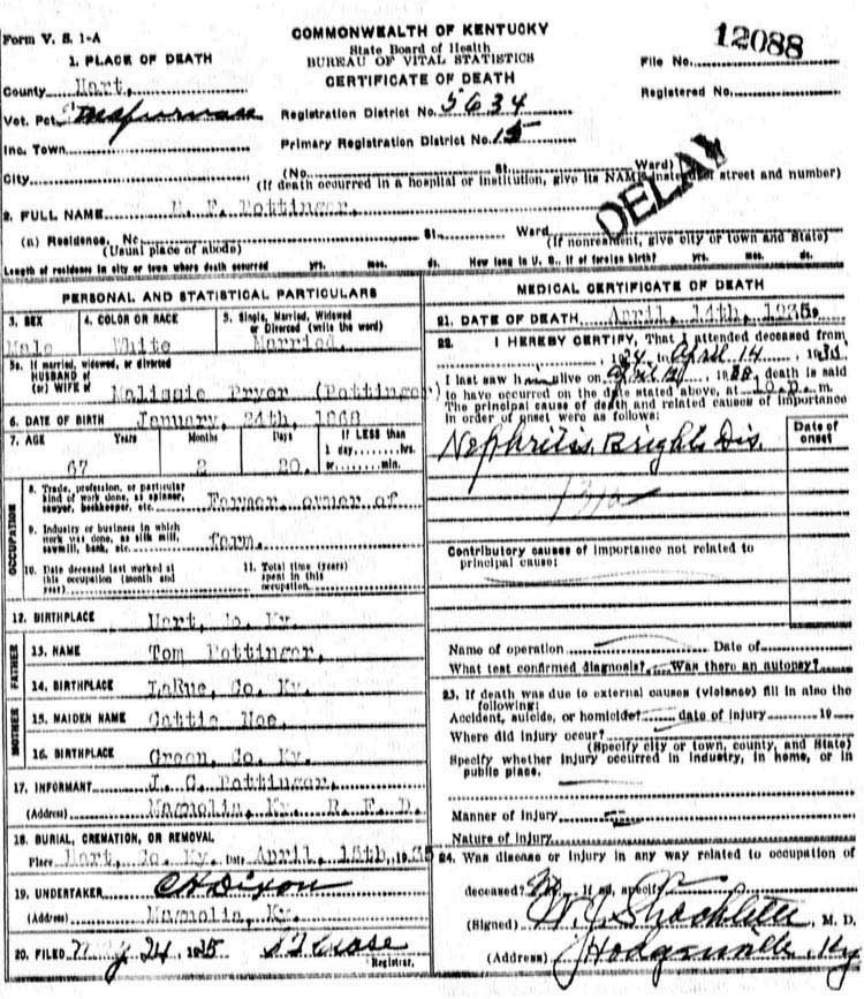 Form V. S. 1-A
COMMONWEALTH OF KENTUCKY
State Board of Health
BUREAU OF VITAL STATISTICS
CERTIFICATE OF DEATH
12088
File No.
Registered No.
DELAY
1. PLACE OF DEATH
County Hart,
Vot. Pct.
Inc. Town
City
Registration District No. 5634
Primary Registration District No. 15
(No. St. Ward)
(If death occurred in a hospital or institution, give its NAME instead of street and number)
2. FULL NAME F. Pottinger,
(a) Residence. No. St. Ward
(Usual place of abode) (If nonresident, give city or town and State)
Length of residence in city or town where death occurred yrs. mos. ds. How long in U. S., if of foreign birth? yrs. mos. ds.
PERSONAL AND STATISTICAL PARTICULARS
3. SEX 4. COLOR OR RACE 5. Single, Married, Widowed or Divorced (write the word)
Male White Married.
5a. If married, widowed, or divorced
HUSBAND of
(or) WIFE of Malissie Pryor (Pottinger)
6. DATE OF BIRTH January, 24th, 1868
7. AGE Years Months Days If LESS than
1 day, hrs.
67 2 20. or min.
OCCUPATION
8. Trade, profession, or particular kind of work done, as spinner, sawyer, bookkeeper, etc. Farmer, owner of
9. Industry or business in which work was done, as silk mill, sawmill, bank, etc. farm.
10. Date deceased last worked at this occupation (month and year)
11. Total time (years) spent in this occupation
12. BIRTHPLACE Hart, Co. Ky.
FATHER
13. NAME Tom Pottinger,
14. BIRTHPLACE LaRue, Co. Ky.
MOTHER
15. MAIDEN NAME
16. BIRTHPLACE Green, Co. Ky.
17. INFORMANT J. C. Pottinger,
(Address) Magnolia, Ky. R. F. D.
18. BURIAL, CREMATION, OR REMOVAL
Place Hart, Co. Ky. Date April, 15th, 1935
19. UNDERTAKER C H Dixon
(Address) Magnolia, Ky.
20. FILED May 24, 1935
Registrar.
MEDICAL CERTIFICATE OF DEATH
21. DATE OF DEATH April, 14th, 1935.
22. I HEREBY CERTIFY, That I attended deceased from
, 1934, to April 14, 1935
I last saw him alive on , 19 , death is said
to have occurred on the date stated above, at 10. p. m.
The principal cause of death and related causes of importance
in order of onset were as follows:
Date of onset
Nephritis, Brights Dis.
Contributory causes of importance not related to
principal cause:
Name of operation Date of
What test confirmed diagnosis? Was there an autopsy?
23. If death was due to external causes (violence) fill in also the
following:
Accident, suicide, or homicide? date of injury 19
Where did injury occur?
(Specify city or town, county, and State)
Specify whether injury occurred in industry, in home, or in
public place.
Manner of injury
Nature of injury
24. Was disease or injury in any way related to occupation of
deceased? No If so, specify
(Signed) , M. D.
(Address) Hodgenville, Ky